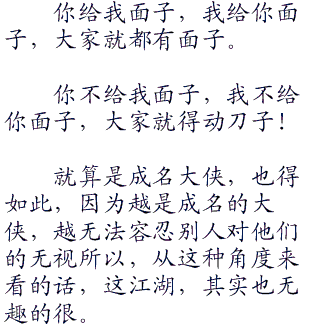 你给我面子，我给你面
子，大家就都有面子。
你不给我面子，我不给
你面子，大家就得动刀子！
就算是成名大侠，也得
如此，因为越是成名的大
侠，越无法容忍别人对他们
的无视所以，从这种角度来
看的话，这江湖，其实也无
趣的很。